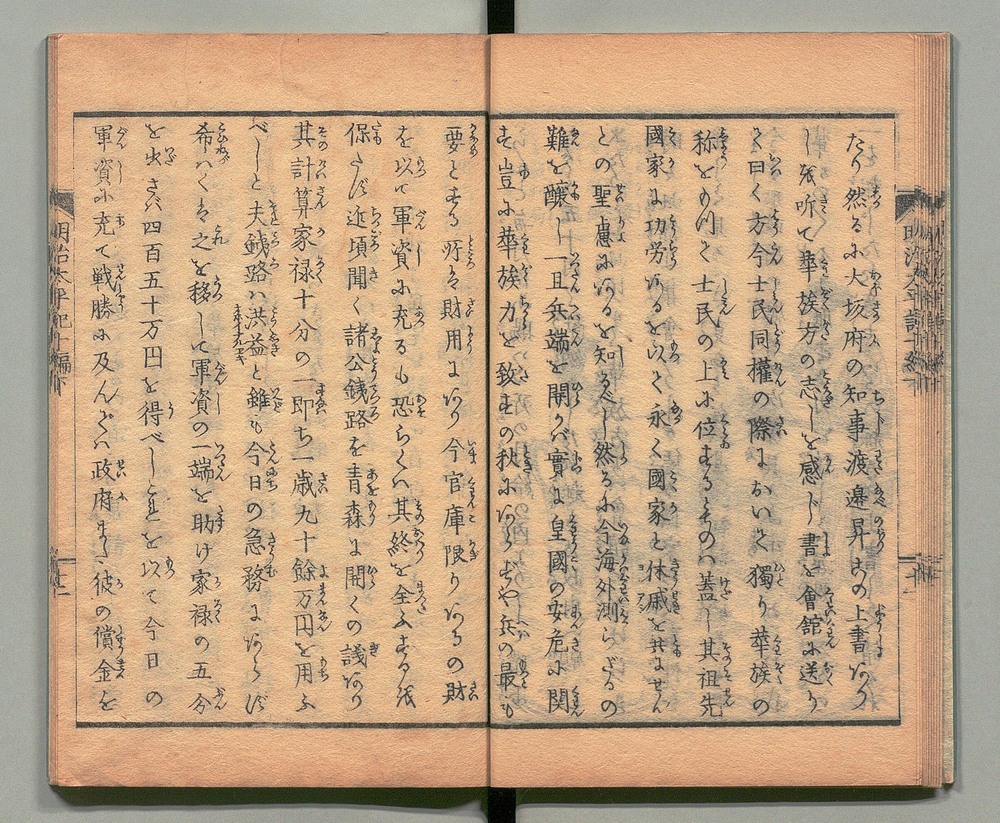 たり然るに大坂府の知事渡邉昇ぬしの上書あり
し趣聞て華族方の志しを感じ書を會館に送り
て曰く方今士民同權の際において獨り華族の
称をもつて士民の上に位するものハ蓋し其祖先
國家に功労あるを以て永く國家と休戚を共にせん
との聖慮にあるを知るべし然るに今海外測らざるの
難を醸し一旦兵端を開かバ實に皇國の安危に関
す豈に華族力を致すの秋にあらずや兵の最も
要とする所は財用にあり今官庫限りあるの財
を以て軍資に充るも恐らくハ其終を全ふする能
保たず近頃聞く諸公銕路を青森に開くの議あり
其計算家禄十分の一即ち一歳九十餘万円を用ふ
べしと夫銕路ハ洪益と雖も今日の急務にあらず
希ハくは之を移して軍資の一端を助け家禄の五分
を出さバ四百五十万円を得べし是を以て今日の
軍資に充て戦勝に及んでハ政府また彼の償金を
明治太平記十編下